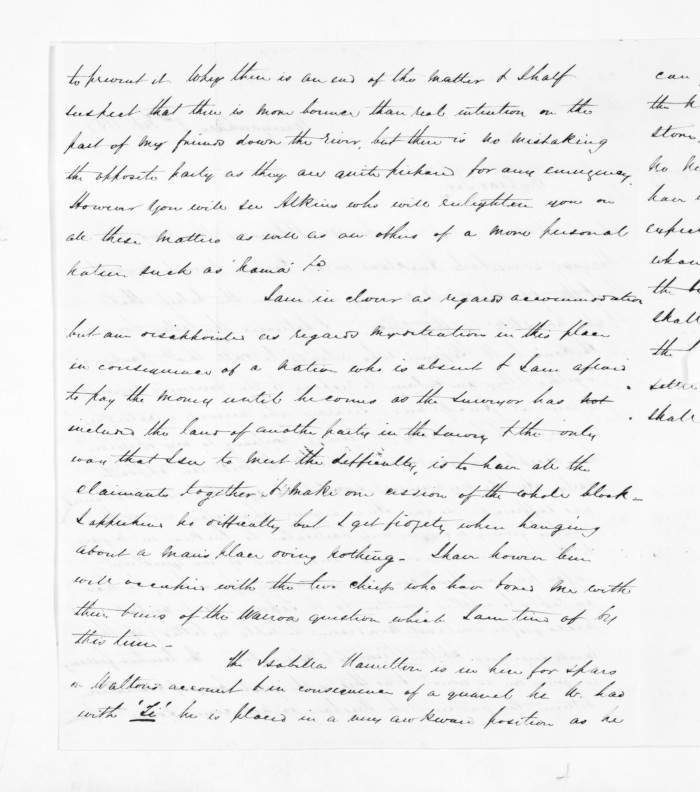 to prevent it Why then is an end of the matter & I half
suspect that there is more bounce than real intention on the
part of my friends down the river, but there is no mistaking
the opposite party as they are quite prepared for any emergency.
However you will see Atkins who will enlighten you on
all these matters as well as on others of a more personal
nature such as 'hama' &c
I am in clover as regards accommodation
but am disappointed as regards my detention in this place
in consequence of a Native who is absent & I am afraid
to pay the money until he comes as the surveyor has not
included the land of another party in the survey & the only
way that I see to meet the difficulty, is to have all the
claimants together & make one cession of the whole block -
I apprehend no difficulty but I get fidgety when hanging
about a man's place doing nothing - I have however been
well occupied with the two chiefs who have bored me with
their views of the Wairoa question which I am tired of by
this time -
The Isabella Hamilton is in here for spars
on Walton's account & in consequence of a quarrel he W. had
with 'Ti' he is placed in a very awkward position as he
can
the
stone,
no
have
expect
the
shall
the
settle
shall